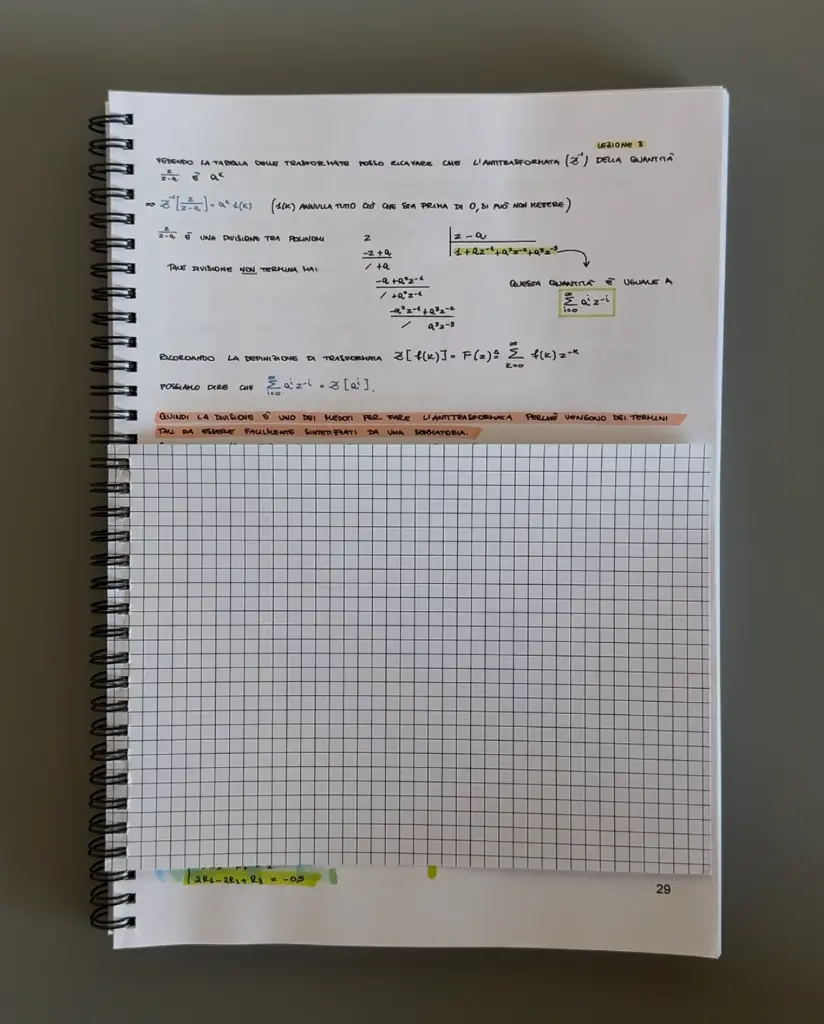 LEZIONE 8
VEDENDO LA TABELLA DELLE TRASFORMATE POSSO RICAVARE CHE L'ANTITRASFORMATA (Z⁻¹) DELLA QUANTITÀ
z/(z-a) È aᵏ
⇒ Z⁻¹[z/(z-a)] = aᵏ 1(K) (1(K) ANNULLA TUTTO CIÒ CHE STA PRIMA DI 0, SI PUÒ NON METTERE)
z/(z-a) È UNA DIVISIONE TRA POLINOMI
TALE DIVISIONE NON TERMINA MAI
z | z-a
-z+a | 1+az⁻¹+a²z⁻²+a³z⁻³
/ +a
-a+a²z⁻¹
/ +a²z⁻¹
-a²z⁻¹+a³z⁻²
/ a³z⁻³
QUESTA QUANTITÀ È UGUALE A
∞ Σ i=0 aⁱ z⁻ⁱ
RICORDANDO LA DEFINIZIONE DI TRASFORMATA Z[f(K)] = F(z) ≜ ∞ Σ K=0 f(K) z⁻ᵏ
POSSIAMO DIRE CHE ∞ Σ i=0 aⁱ z⁻ⁱ = Z[aⁱ].
QUINDI LA DIVISIONE È UNO DEI METODI PER FARE L'ANTITRASFORMATA PERCHÉ VENGONO DEI TERMINI
TALI DA ESSERE FACILMENTE SINTETIZZATI DA UNA SOMMATORIA.
2R₁-2R₂+R₃ = -0,5
29